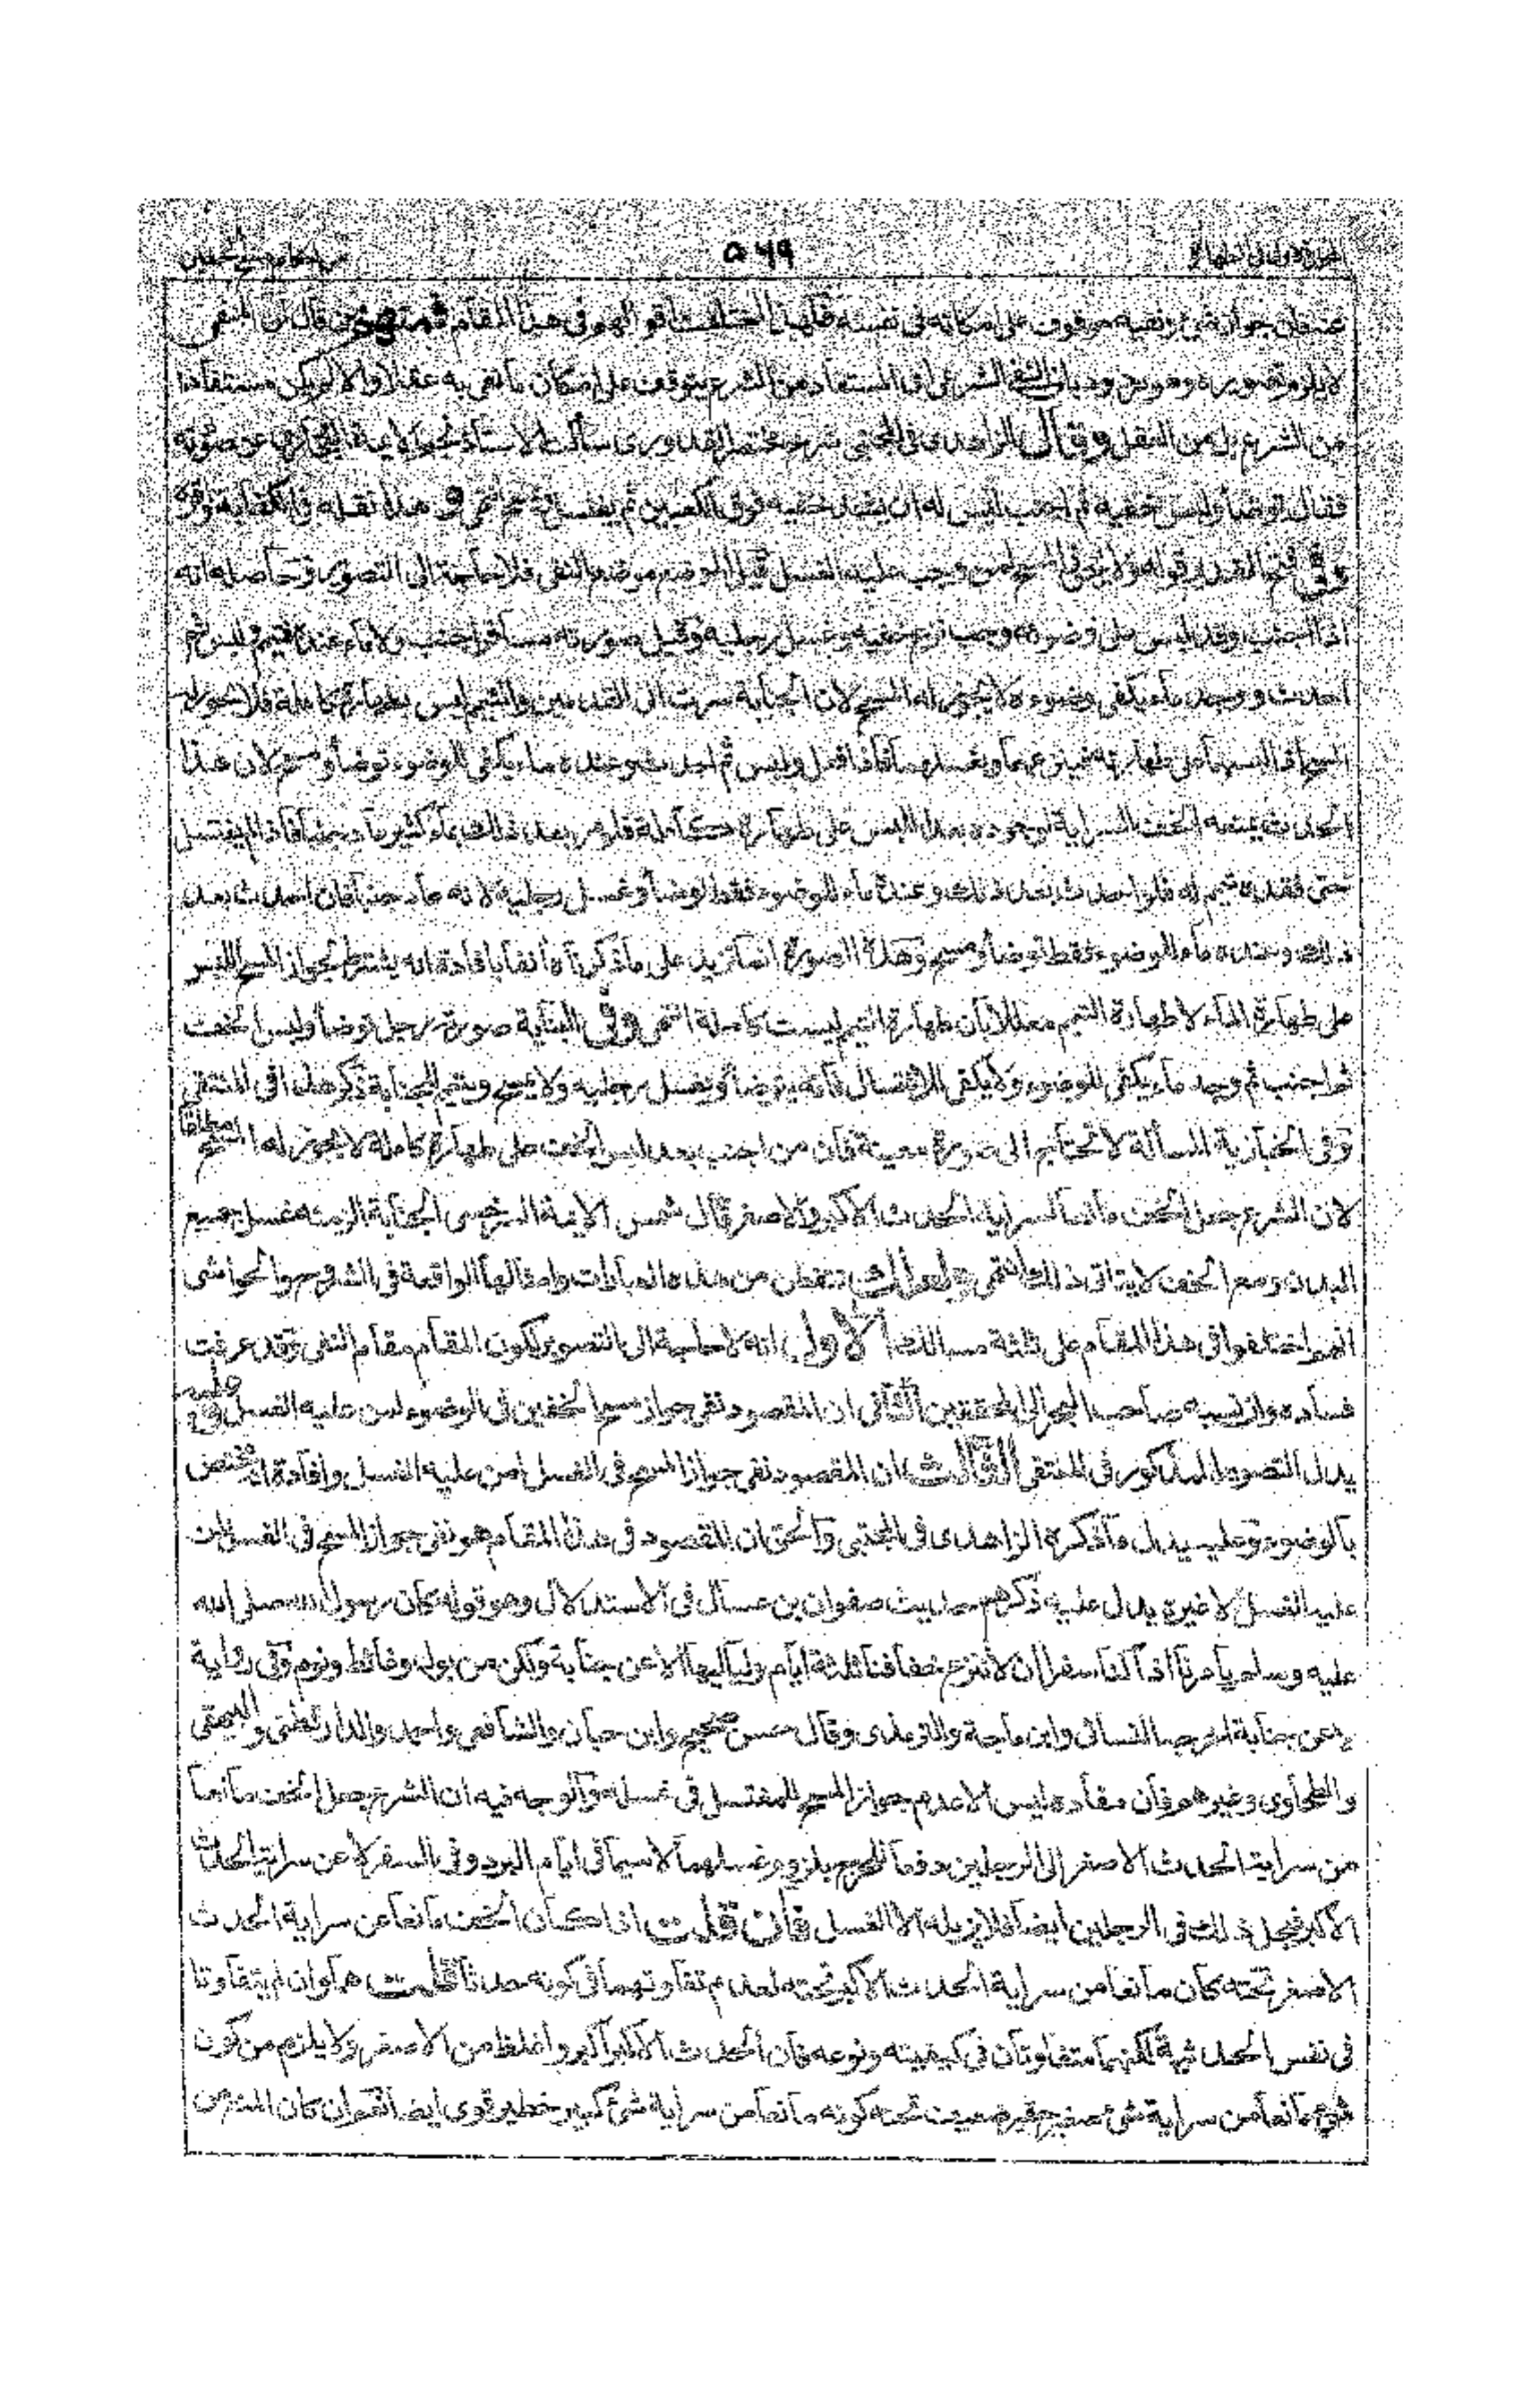 ٥٦٩
عنه فان جواز شئ ونفيه موقوف على امكانه فى نفسه فلهذا اختلفت اقوالهم فى هذا المقام فمنهم من قال ان المنفى
لا يلزم تصويره وهو ان النفى الشرعى اى المستفاد من الشرع يتوقف على امكان ما نفى به عقلا والا لم يكن مستفادا
من الشرع بل من العقل وقال الزاهدى فى المجتبى شرح مختصر القدورى سألت الاستاذ نجم الائمة البخارى عن صورته
فقال توضأ ولبس خفيه ثم اجنب ليس له ان يشد خفيه فوق الكعبين ثم يغتسل ويمسح انتهى هذا نقله فى الكفاية
وفى فتح القدير قوله ولا يجوز المسح لمن وجب عليه الغسل قيل الموضع موضع النفى فلا حاجة الى التصوير وحاصله انه
اذا اجنب وقد لبس على وضوء وجب نزع خفيه وغسل رجليه وقيل صورته مسافر اجنب ولا ماء عنده فتيمم ولبس ثم
احدث ووجد ماء يكفى وضوءه لا يجوز له المسح لان الجنابة سرت الى القدمين والتيمم ليس بطهارة كاملة فلا يجوز له
المسح اذا لبسهما على طهارته فينزعهما ويغسلهما فاذا فعل ولبس ثم احدث وعنده ماء يكفى للوضوء توضأ ومسح لان هذا
الحدث يمنعه الخف السراية لوجوده بعد اللبس على طهارة كاملة فلو مر بعد ذلك بماء كثير عاد جنبا فاذا لم يغتسل
حتى فقده تيمم له فلو احدث بعد ذلك وعنده ماء للوضوء فقط توضأ وغسل رجليه لانه عاد جنبا فان احدث بعد
ذلك وعنده ماء للوضوء فقط توضأ ومسح وهذه الصورة انما تزيد على ما ذكرناه انفا بافادة انه يشترط لجواز المسح اللبس
على طهارة الماء لا طهارة التيمم معللا بان طهارة التيمم ليست كاملة انتهى وفى البناية صورة رجل توضأ ولبس الخف
ثم اجنب ثم وجد ماء يكفى للوضوء ولا يكفى للاغتسال فانه يتوضأ ويغسل رجليه ولا يمسح ويتيمم للجنابة ذكر هذا فى المنتقى
وفى الخبازية المسألة لا تحتاج الى صورة معينة فان من اجنب بعد لبس الخف على طهارة كاملة لا يجوز له المسح مطلقا
لان الشرع جعل الخف مانعا لسراية الحدث الاكبر والاصغر قال شمس الائمة السرخسى الجنابة الزمته غسل جميع
البدن ومع الخف لا يتاتى ذلك انتهى ولعلك تتفطن من هذه العبارات وامثالها الواقعة فى الشروح والحواشى
انهم اختلفوا فى هذا المقام على ثلثة مسالك الاول انه لا حاجة الى التصوير لكون المقام مقام النفى وقد عرفت
فساده وان نسبه صاحب البحر الى المحققين الثانى ان المقصود نفى جواز مسح الخفين فى الوضوء لمن عليه الغسل وعليه
يدل التصوير المذكور فى المنتقى الثالث ان المقصود نفى جواز المسح فى الغسل لمن عليه الغسل وافادة انه مختص
بالوضوء وعليه يدل ما ذكره الزاهدى فى المجتبى والحق ان المقصود فى هذا المقام هو نفى جواز المسح فى الغسل لمن
عليه الغسل لا غيره يدل عليه ذكرهم حديث صفوان بن عسال فى الاستدلال وهو قوله كان رسول الله صلى الله
عليه وسلم يأمرنا اذا كنا سفرا ان لا ننزع خفافنا ثلثة ايام ولياليها الا عن جنابة ولكن من بول وغائط ونوم وفى رواية
لا عن جنابة اخرجه النسائى وابن ماجة والترمذى وقال حسن صحيح وابن حبان والشافعى واحمد والدارقطنى والبيهقى
والطحاوى وغيرهم فان مفاده ليس الا عدم جواز المسح للمغتسل فى غسله والوجه فيه ان الشرع جعل الخف مانعا
من سراية الحدث الاصغر الى الرجلين دفعا للحرج بلزوم غسلهما لا سيما فى ايام البرد وفى السفر لا عن سراية الحدث
الاكبر فيحل ذلك فى الرجلين ايضا فلا يزيله الا الغسل فان قلت اذا كان الخف مانعا عن سراية الحدث
الاصغر تحته كان مانعا من سراية الحدث الاكبر تحته لعدم تفاوتهما فى كونه حدثا قلت هما وان لم يتفاوتا
فى نفس الحدثية لكنهما متفاوتان فى كيفيته ونوعه فان الحدث الاكبر اكبر واغلظ من الاصغر ولا يلزم من كون
شئ مانعا من سراية شئ صغير حقير ضعيف تحته كونه مانعا من سراية شئ كبير خطير قوى ايضا نعم ان كان